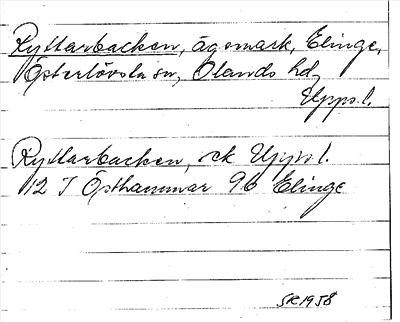 Ryttarbacken, ägomark, Elinge,
Österlövsta sn, Olands hd,
Upps. l.
Ryttarbacken, ek Upps l.
12 I Östhammar 9b Elinge
SK 1958